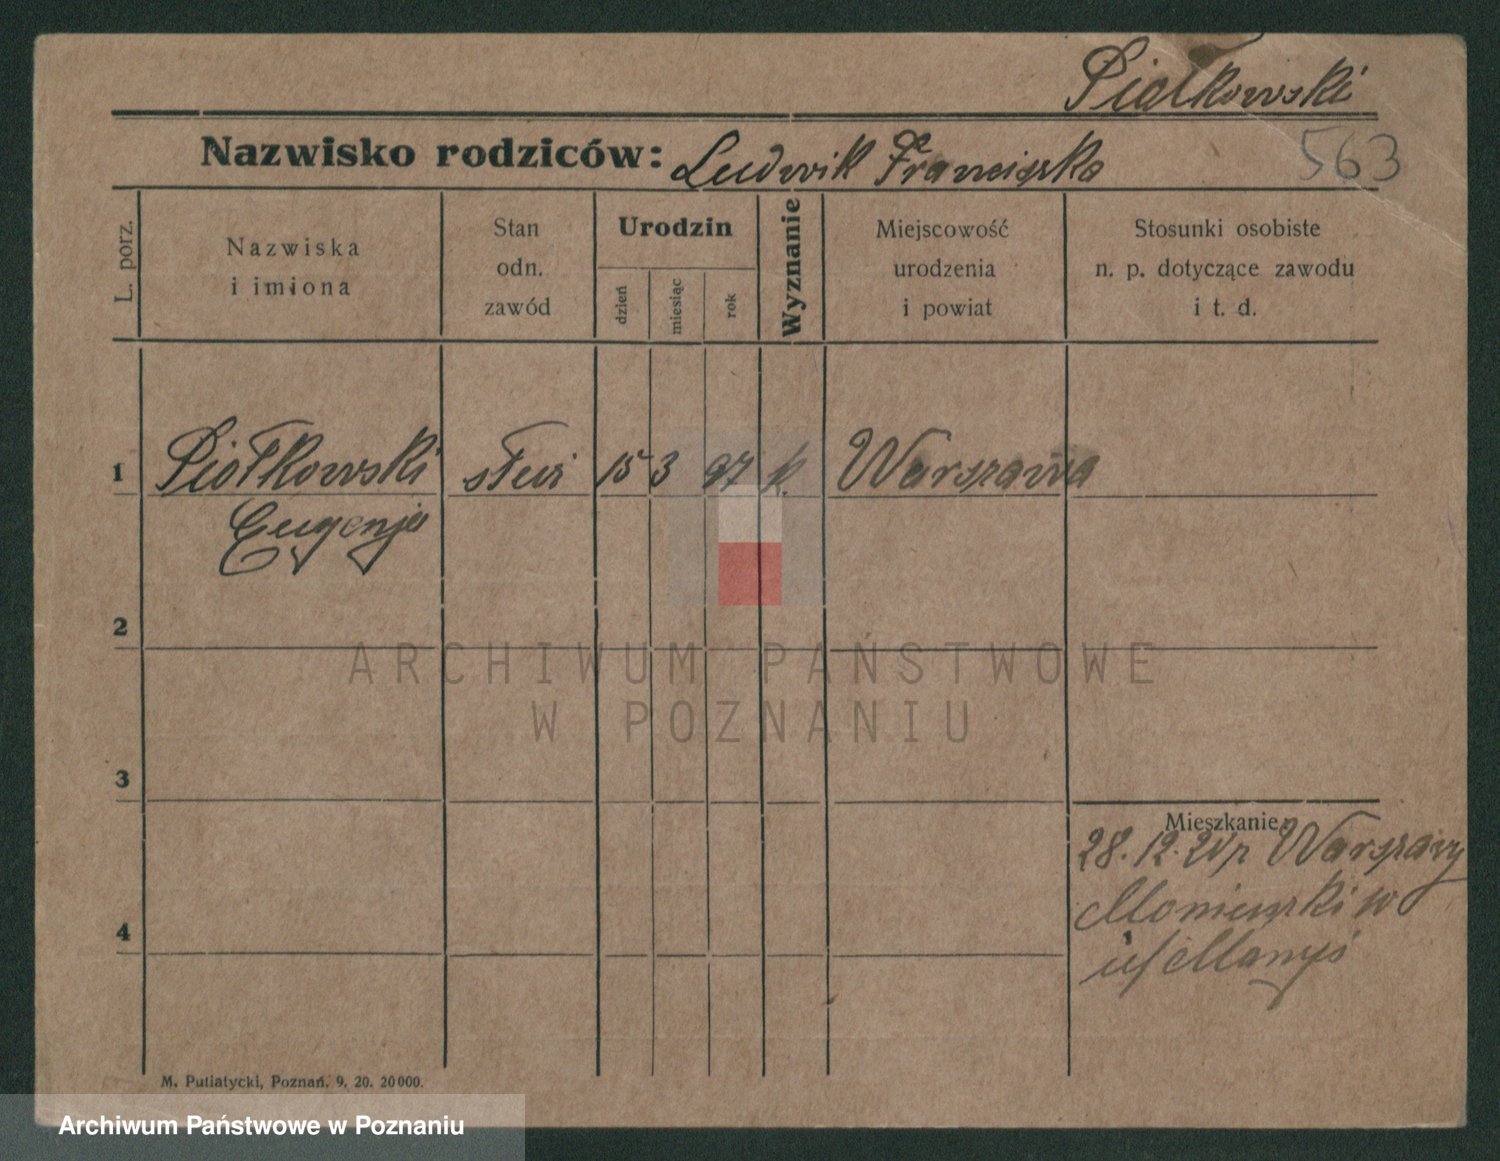 Piątkowski
Nazwisko rodziców: Ludwik Franciszka
563
L. porz.
Nazwiska
i imiona
Stan
odn.
zawód
Urodzin
dzień
miesiąc
rok
Wyznanie
Miejscowość
urodzenia
i powiat
Stosunki osobiste
n. p. dotyczące zawodu
i t. d.
1 Piotkowski 15 3 97 k. Warszawa
Eugenja
2
ARCHIWUM PAŃSTWOWE
W POZNANIU
3
Mieszkanie
28.12. Warszawy
4
M. Putiatycki, Poznań. 9. 20. 20000.
Archiwum Państwowe w Poznaniu